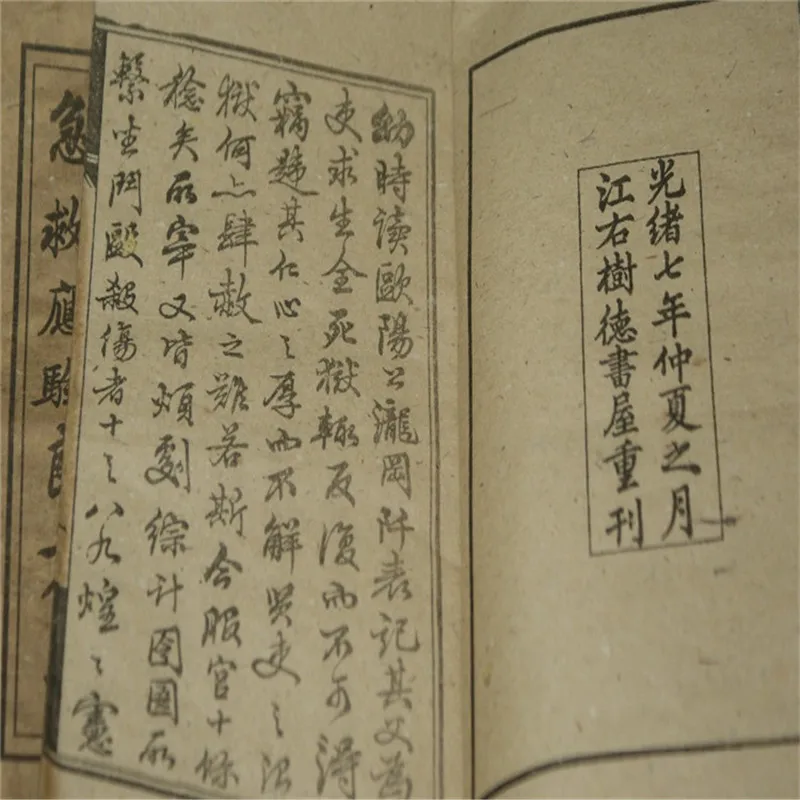 光緒七年仲夏之月
江右樹德書屋重刊
幼時读歐陽公瀧岡阡表記其父為
吏求生全死獄輒反復而不可得
竊韙其仁心之厚而不解賢吏之治
獄何亦肆赦之難若斯今服官十餘
稔矣所宰又皆煩劇綜計囹圄所
繫坐鬥毆殺傷者十之八九煌々憲
急救應驗良